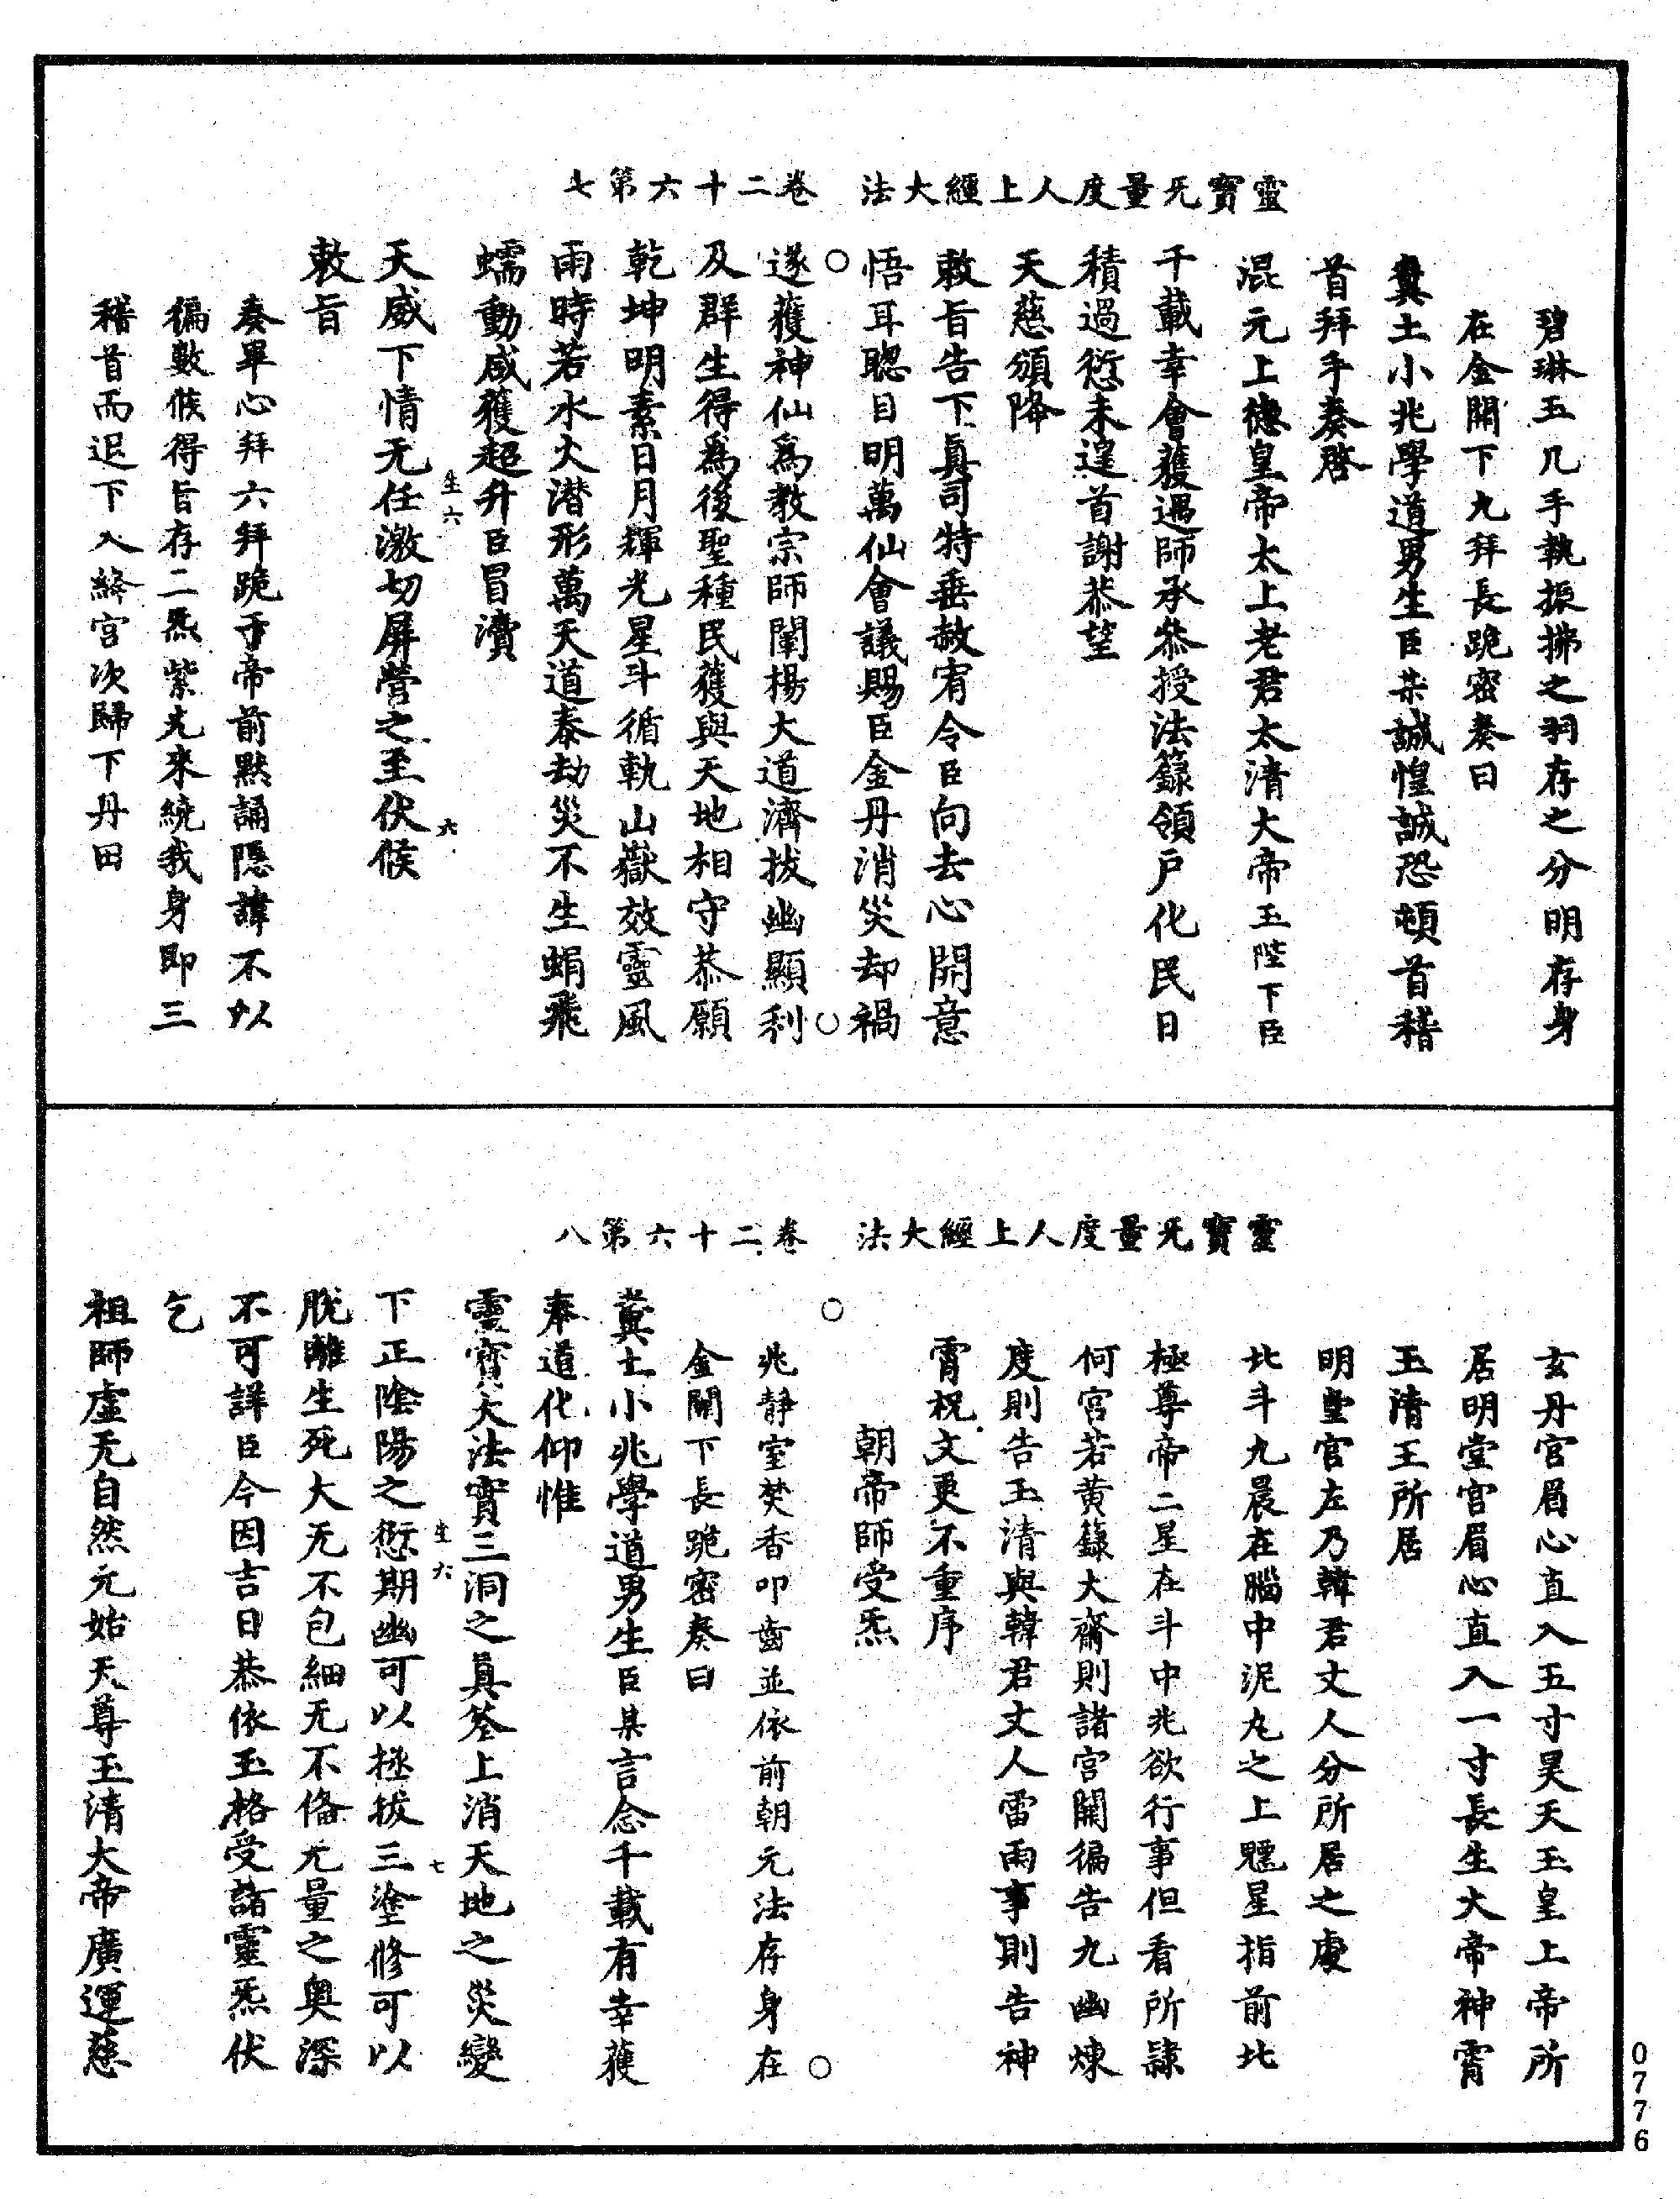 靈寶无量度人上經大法　卷二十六第七
碧琳玉几手執振拂之羽存之分明存身
在金闕下九拜長跪密奏曰
糞土小兆學道男生臣某誠惶誠恐頓首稽
首拜手奏啓
混元上德皇帝太上老君太清大帝玉陛下臣
千載幸會獲遇師承叅授法籙領户化民日
積過愆未遑首謝恭望
天慈頒降
敕旨告下真司特垂赦宥令臣向去心開意
悟耳聰目明萬仙會議賜臣金丹消災却禍
遂獲神仙爲教宗師闡揚大道濟拔幽顯利
及群生得爲後聖種民獲與天地相守恭願
乾坤明素日月輝光星斗循軌山嶽效靈風
雨時若水火潛形萬天道泰劫災不生蜎飛
蠕動咸獲超升臣冒瀆
天威下情无任激切屏營之至伏候
敕旨
奏畢心拜六拜跪于帝前默誦隱諱不以
徧數候得旨存二炁紫光來繞我身即三
稽首而退下入絳宫次歸下丹田
生六
六
靈寶无量度人上經大法　卷二十六第八
玄丹官眉心直入五寸昊天玉皇上帝所
居明堂宫眉心直入一寸長生大帝神霄
玉清王所居
明堂官左乃韓君丈人分所居之處
北斗九晨在腦中泥丸之上魒星指前北
極尊帝二星在斗中兆欲行事但看所隸
何宫若黄籙大齋則諸宫闕徧告九幽煉
度則告玉清與韓君丈人雷雨事則告神
霄祝文更不重序
朝帝師受炁
兆静室焚香叩齒並依前朝元法存身在
金闕下長跪密奏曰
糞土小兆學道男生臣某言念千載有幸獲
奉道化仰惟
靈寶大法寳三洞之真筌上消天地之災變
下正陰陽之愆期幽可以拯拔三塗修可以
脱離生死大无不包細无不俻无量之奥深
不可詳臣今因吉日恭依玉格受諸靈炁伏
乞
祖師虚无自然元始天尊玉清大帝廣運慈
生六
七
0776